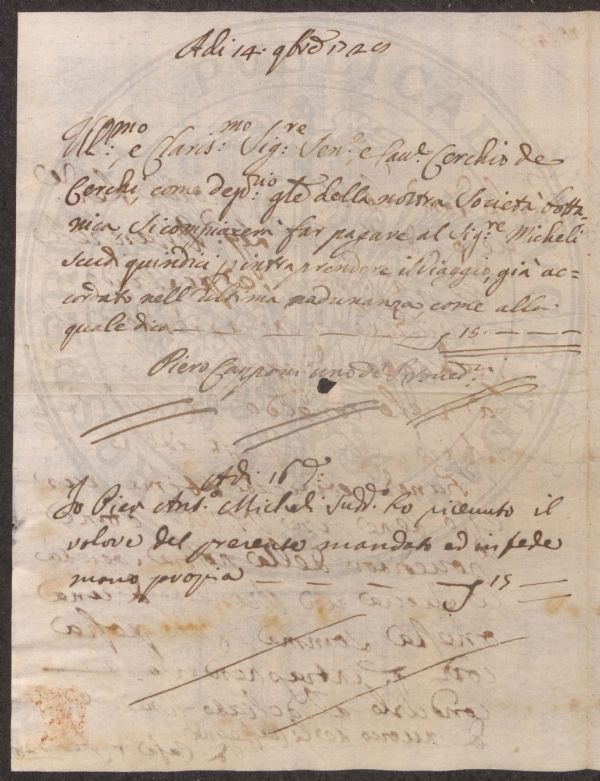 Adi 14: 9bre 1720
Ill:mo, e Claris:mo Sig:re Sen:e, e Cau:e Cerchio de
Cerchi, come dep:rio gle della nostra Società botta
nica, si compiacerà far pagare al Sig:re Micheli
scudi quindici p intraprendere il viaggio, già ac=
cordato nell'ultima radunanza come alla
quale dico — — — — — — ∫ 15. — — —
Piero Capponi uno de Proued:ri
Adi 16 d:
Io Pier Ant.o Micheli Sudd.o ho riceuuto il
valore del presente mandato ed in fede
mano propria — — — — ∫ 15 —